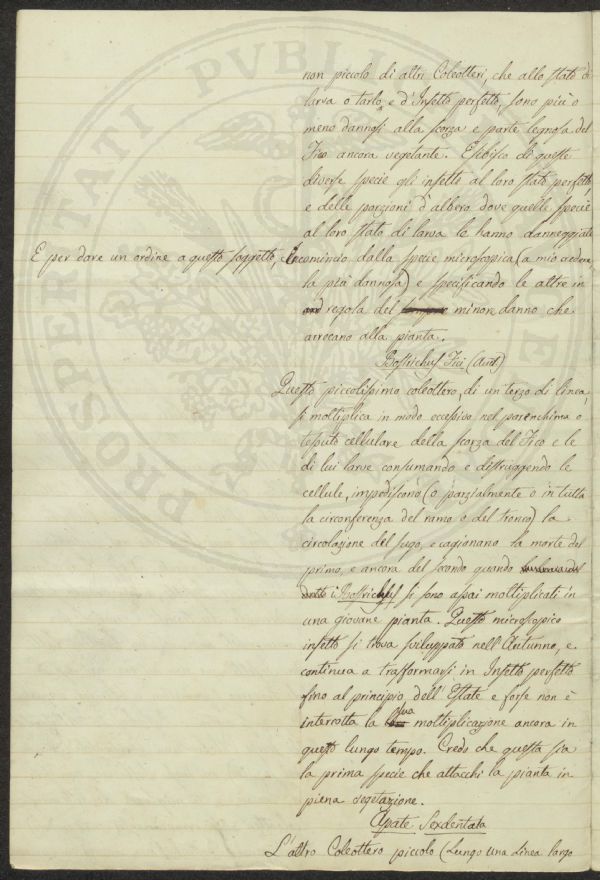 non piccolo di altri Coleotteri, che allo stato di
larva o tarlo, e d'Insetto perfetto, sono più o
meno dannosi alla scorza e parte legnosa del
Fico ancora vegetante. Esibisco di queste
diverse specie gli insetti al loro stato perfetto,
e delle porzioni d'albero dove quelle specie
al loro stato di larva le hanno danneggiate
E per dare un ordine a questo soggetto, Incomincio dalla specie microscopica (a mio credere,
la più dannosa) e specificando le altre in
regola del minore danno che
arrecano alla pianta.
Bostrichus Fici (Aut.)
Questo piccolissimo coleottero, di un terzo di linea,
si moltiplica in modo eccessivo nel parenchima o
tessuto cellulare della scorza del Fico e le
di lui larve consumando e distruggendo le
cellule, impediscono (o parzialmente o in tutta
la circonferenza del ramo o del tronco) la
circolazione del sugo, e cagionano la morte del
primo, e ancora del secondo quando
i Bostrichus si sono assai moltiplicati in
una giovane pianta. Questo microscopico
insetto si trova sviluppato nell'Autunno, e
continua a trasformarsi in Insetto perfetto
fino al principio dell'Estate e forse non è
interrotta la sua moltiplicazione ancora in
questo lungo tempo. Credo che questa sia
la prima specie che attacchi la pianta in
piena vegetazione.
Apate Sexdentata
L'altro Coleottero piccolo (Lungo una linea largo
PROSPERITATI PVBLI